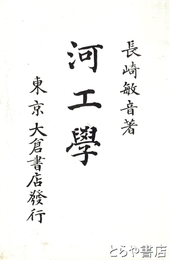 長崎敏音著
河工學
東京大倉書店發行
とらや書店